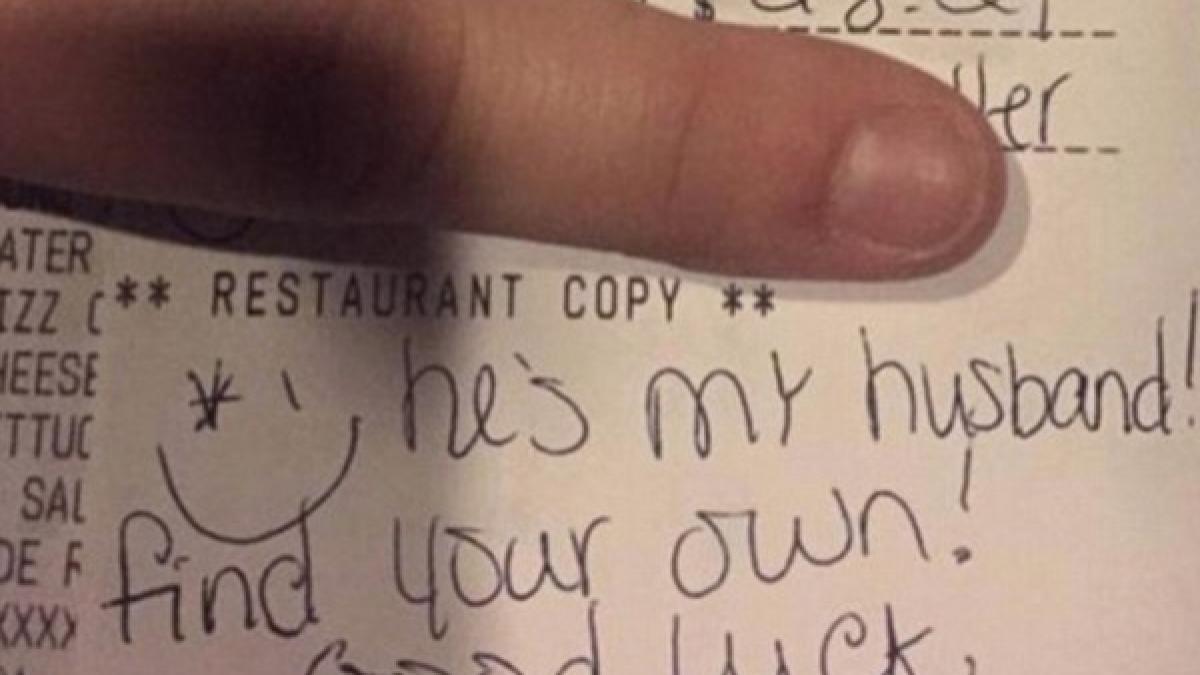 ATER
IZZ C
** RESTAURANT COPY **
HEESE
he's my husband!
TTUC
SAL
find your own!
DE F
XXX>
Good luck.